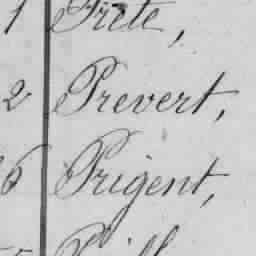 1 Frete,
2 Prevert,
6 Prigent,